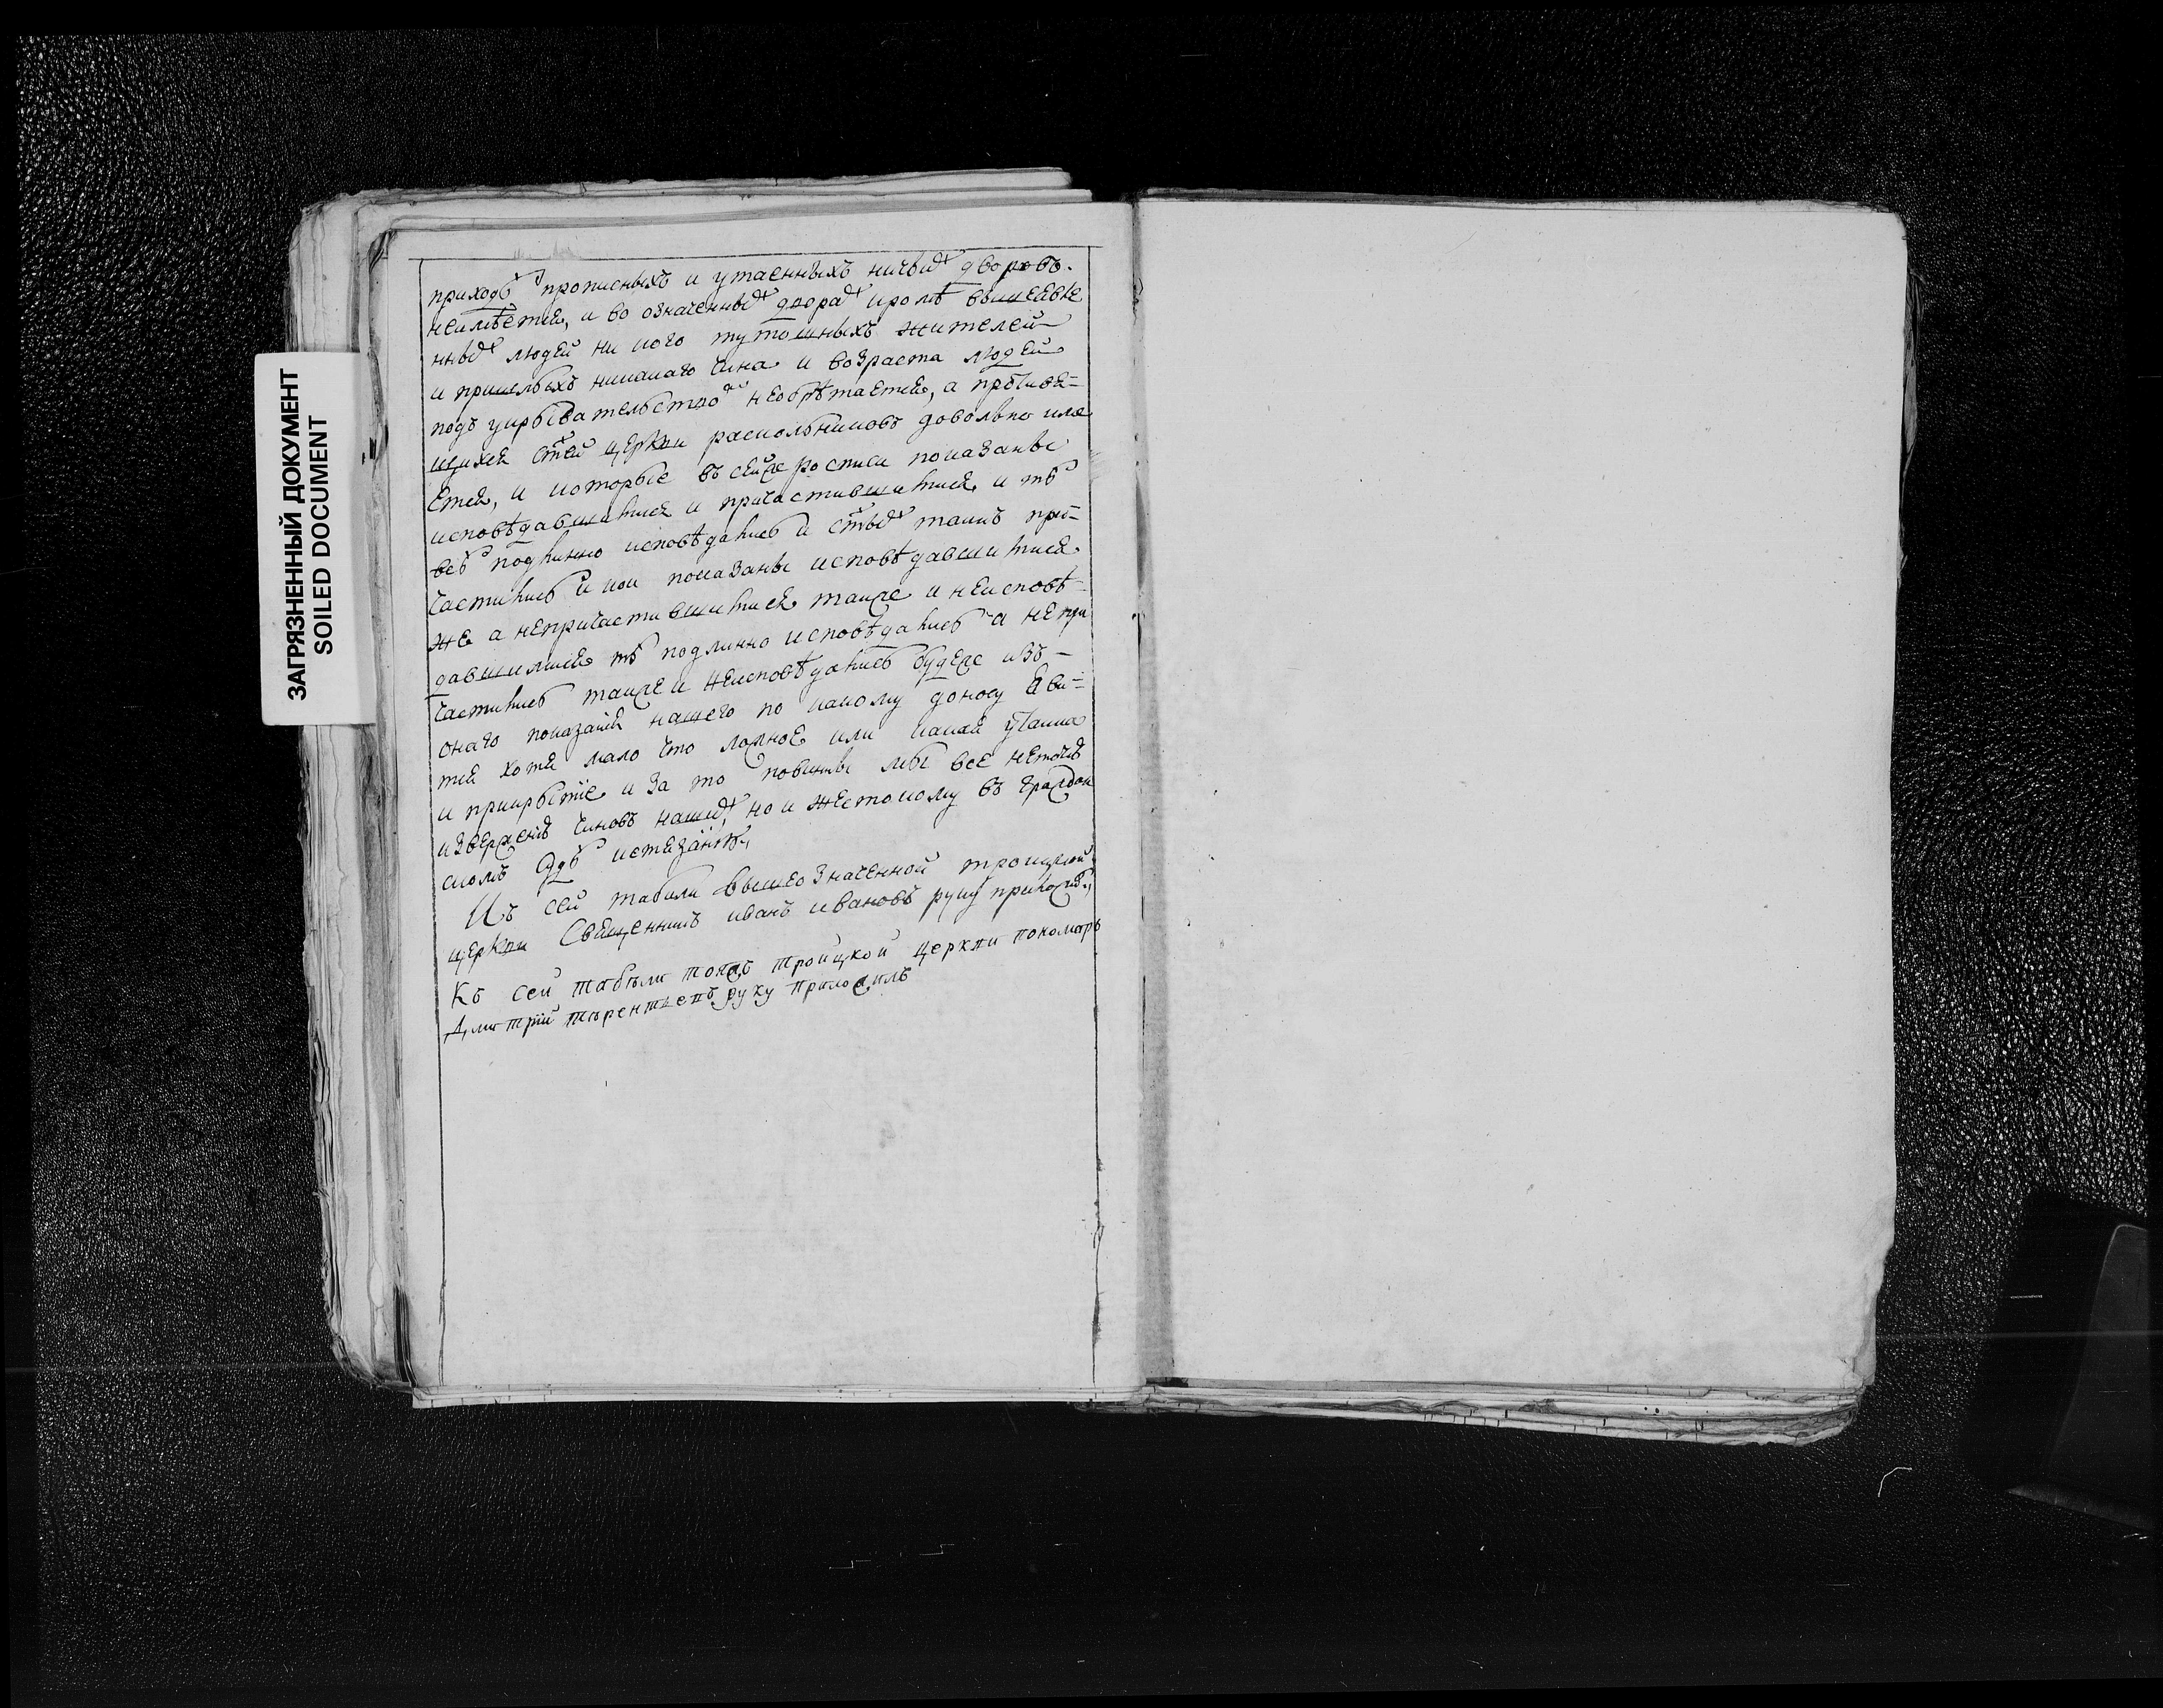 ЗАГРЯЗНЕННЫЙ ДОКУМЕНТ
SOILED DOCUMENT
приходѣ прописныхъ и утаенныхъ ничьихъ дворовъ
неимѣется, и во означенныхъ дворахъ кромѣ вышеявле
нныхъ людей ни кого тутошныхъ жителей
и пришлыхъ никакаго чина и возраста людей
подъ укрывательствомъ необрѣтается, а противя=
щихся стѣй церкви раскольниковъ довольно име
ется, и которые въ сей же росписи показаны
исповѣдавшимися и причастившимися, и тѣ
всѣ подлинно исповѣдались и стыхъ таинъ при=
частились и кои показаны исповѣдавшимися
же а непричастившимися также и неисповѣ=
давшимися тѣ подлинно исповѣдались а непри
частились также и неисповѣдались будеже изъ
онаго показания нашего по какому доносу яви=
тся хотя мало что ложное или какая утайка
и прикрытие и за то повинны мы все неточию
извержению чиновъ нашихъ, но и жестокому въ граждан
скомъ судѣ истязанию
Къ сей табели вышеозначенной троицкой
церкви Священникъ иванъ ивановъ руку приложилъ
Къ сей табели тояжъ троицкой церкви пономарь
Димитрий терентьевъ руку приложилъ